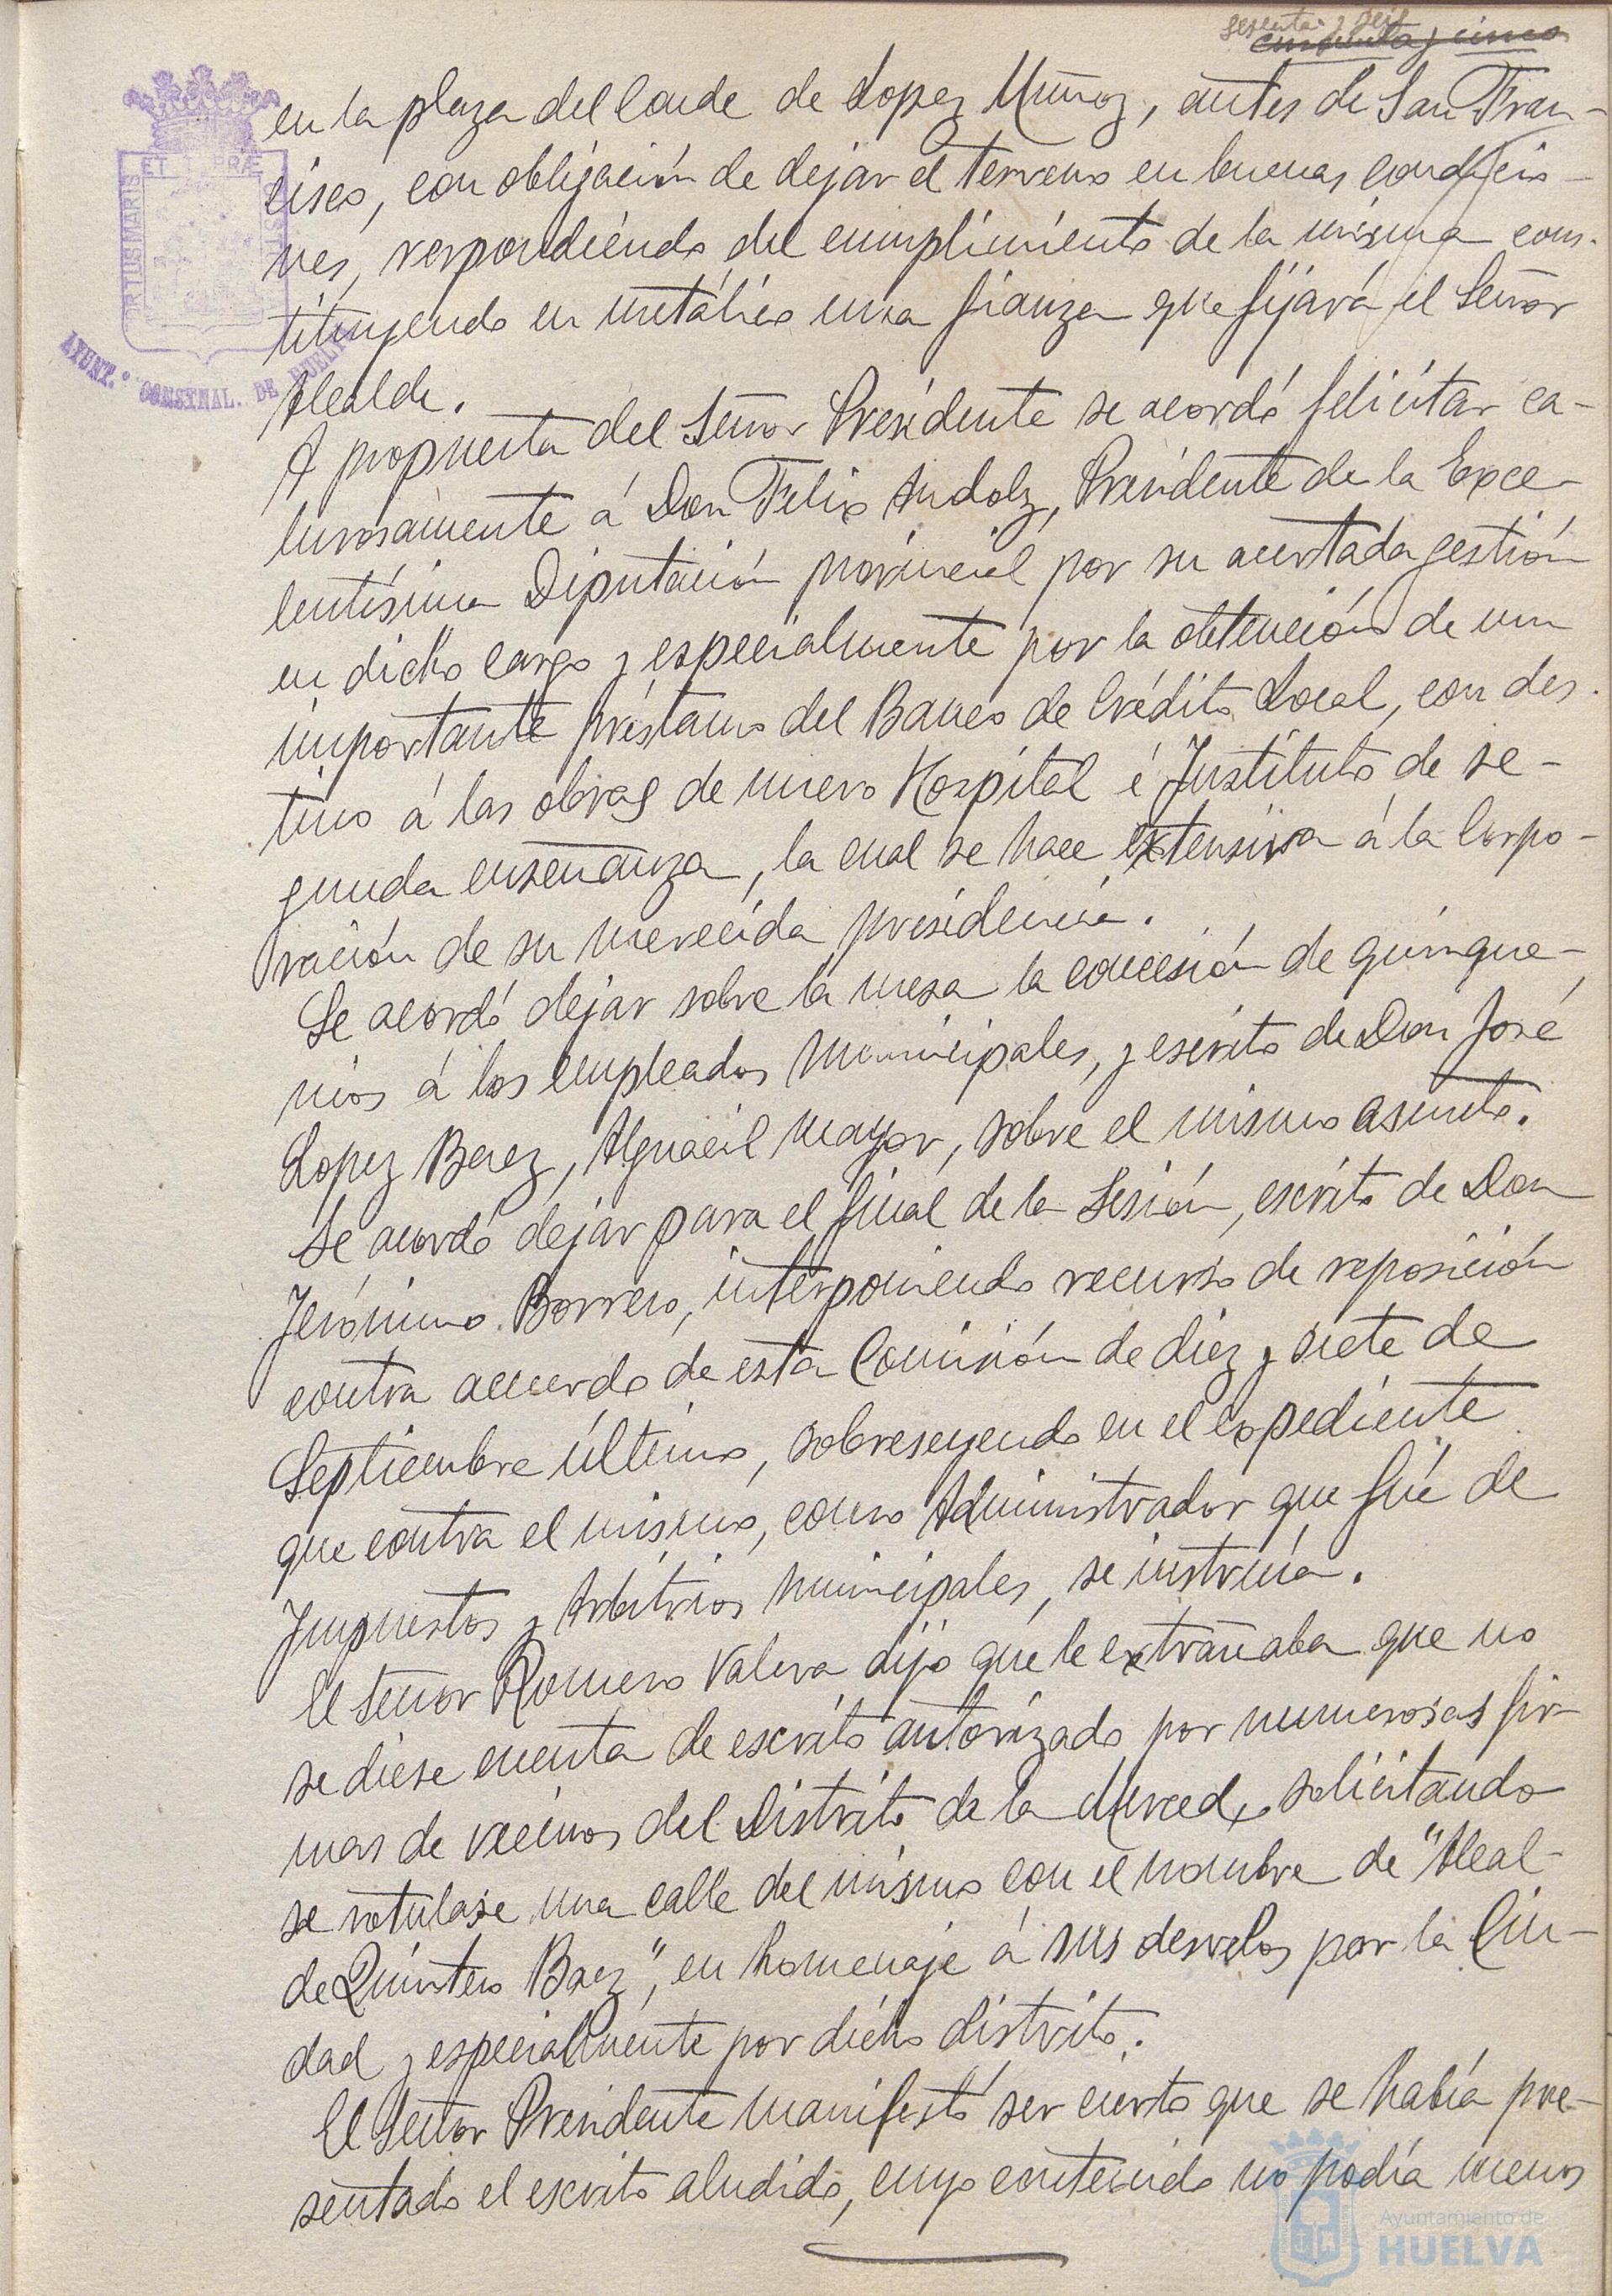 sesenta y seis
cincuenta y cinco
en la plaza del Conde de Lopez Muñoz, antes de San Fran-
cisco, con obligación de dejar el terreno en buenas condicio-
nes, respondiendo del cumplimiento de la misma cons-
tituyendo en metálico una fianza que fijará el Señor
Alcalde.
A propuesta del Señor Presidente se acordó felicitar ca-
lurosamente á Don Felix Andolz, Presidente de la Exce-
lentísima Diputación provincial por su acertada gestión
en dicho cargo y especialmente por la obtención de un
importante préstamo del Banco de Crédito Local, con des-
tino á las obras de nuevo Hospital é Instituto de se-
gunda enseñanza, la cual se hace extensiva á la Corpo-
ración de su merecida presidencia.
Se acordó dejar sobre la mesa la concesión de quinque-
nios á los empleados municipales, y escrito de Don José
Lopez Baez, Alguacil mayor, sobre el mismo asunto.
Se acordó dejar para el final de la Sesión, escrito de Don
Jerónimo Borrero, interponiendo recurso de reposición
contra acuerdo de esta Comisión de diez y siete de
Septiembre último, sobreseyendo en el expediente
que contra el mismo, como Administrador que fué de
Impuestos y Arbitrios municipales, se instruía.
El Señor Romero Valera dijo que le extrañaba que no
se diese cuenta de escrito autorizado por numerosas fir-
mas de vecinos del Distrito de la Merced, solicitando
se rotulase una calle del mismo con el nombre de "Alcal-
de Quintero Baez", en homenaje á sus desvelos por la Ciu-
dad y especialmente por dicho distrito.
El Señor Presidente manifestó ser cierto que se había pre-
sentado el escrito aludido, cuyo contenido no podía menos
PORTUS MARIS ET TERRÆ CUSTODIA
AYUNT.º CONSTNAL. DE HUELVA
Ayuntamiento de
HUELVA